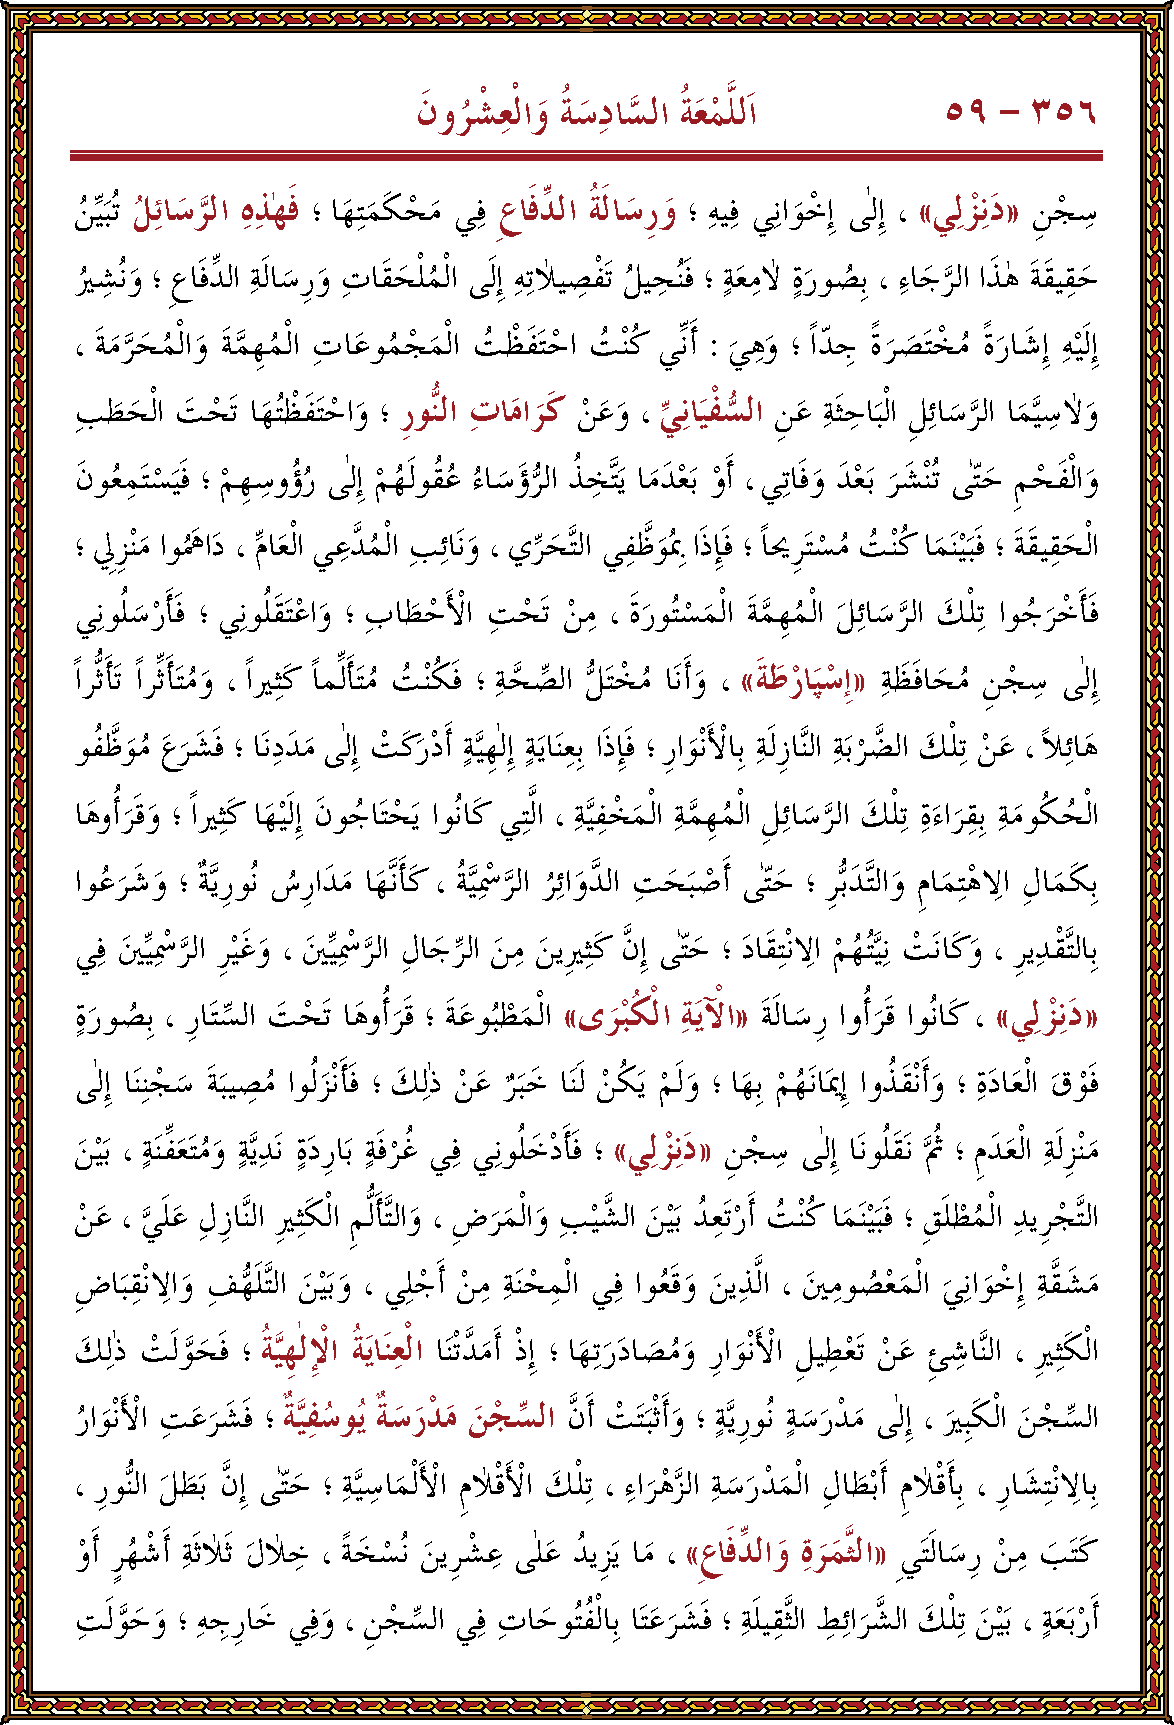 ٣٥٦ – ٥٩ اَللَّمْعَةُ السَّادِسَةُ وَالْعِشْرُونَ
سِجْنِ «دَنِزْلِي» ، إِلٰى إِخْوَانِي فِيهِ ؛ وَرِسَالَةُ الدِّفَاعِ فِي مَحْكَمَتِهَا ؛ فَهٰذِهِ الرَّسَائِلُ تُبَيِّنُ
حَقِيقَةَ هٰذَا الرَّجَاءِ ، بِصُورَةٍ لاٰمِعَةٍ ؛ فَنُحِيلُ تَفْصِيلاٰتِهِ إِلَى الْمُلْحَقَاتِ وَرِسَالَةِ الدِّفَاعِ ؛ وَنُشِيرُ
إِلَيْهِ إِشَارَةً مُخْتَصَرَةً جِدّاً ؛ وَهِيَ : أَنِّي كُنْتُ احْتَفَظْتُ الْمَجْمُوعَاتِ الْمُهِمَّةَ وَالْمُحَرَّمَةَ ،
وَلاٰسِيَّمَا الرَّسَائِلِ الْبَاحِثَةِ عَنِ السُّفْيَانِيِّ ، وَعَنْ كَرَامَاتِ النُّورِ ؛ وَاحْتَفَظْتُهَا تَحْتَ الْحَطَبِ
وَالْفَحْمِ حَتّٰى تُنْشَرَ بَعْدَ وَفَاتِي ، أَوْ بَعْدَمَا يَتَّخِذُ الرُّؤَسَاءُ عُقُولَهُمْ إِلٰى رُؤُوسِهِمْ ؛ فَيَسْتَمِعُونَ
الْحَقِيقَةَ ؛ فَبَيْنَمَا كُنْتُ مُسْتَرِيحاً ؛ فَإِذَا بِمُوَظَّفِي التَّحَرِّي ، وَنَائِبِ الْمُدَّعِي الْعَامِّ ، دَاهَمُوا مَنْزِلِي ؛
فَأَخْرَجُوا تِلْكَ الرَّسَائِلَ الْمُهِمَّةَ الْمَسْتُورَةَ ، مِنْ تَحْتِ الْأَحْطَابِ ؛ وَاعْتَقَلُونِي ؛ فَأَرْسَلُونِي
إِلٰى سِجْنِ مُحَافَظَةِ «إِسْپَارْطَةَ» ، وَأَنَا مُخْتَلُّ الصِّحَّةِ ؛ فَكُنْتُ مُتَأَلِّماً كَثِيراً ، وَمُتَأَثِّراً تَأَثُّراً
هَائِلاً ، عَنْ تِلْكَ الضَّرْبَةِ النَّازِلَةِ بِالْأَنْوَارِ ؛ فَإِذَا بِعِنَايَةٍ إِلٰهِيَّةٍ أَدْرَكَتْ إِلٰى مَدَدِنَا ؛ فَشَرَعَ مُوَظَّفُو
الْحُكُومَةِ بِقِرَاءَةِ تِلْكَ الرَّسَائِلِ الْمُهِمَّةِ الْمَخْفِيَّةِ ، الَّتِي كَانُوا يَحْتَاجُونَ إِلَيْهَا كَثِيراً ؛ وَقَرَأُوهَا
بِكَمَالِ الاِهْتِمَامِ وَالتَّدَبُّرِ ؛ حَتّٰى أَصْبَحَتِ الدَّوَائِرُ الرَّسْمِيَّةُ ، كَأَنَّهَا مَدَارِسُ نُورِيَّةٌ ؛ وَشَرَعُوا
بِالتَّقْدِيرِ ، وَكَانَتْ نِيَّتُهُمْ الاِنْتِقَادَ ؛ حَتّٰى إِنَّ كَثِيرِينَ مِنَ الرِّجَالِ الرَّسْمِيِّينَ ، وَغَيْرِ الرَّسْمِيِّينَ فِي
«دَنِزْلِي» ، كَانُوا قَرَأُوا رِسَالَةَ «الْآيَةِ الْكُبْرَى» الْمَطْبُوعَةَ ؛ قَرَأُوهَا تَحْتَ السِّتَارِ ، بِصُورَةٍ
فَوْقَ الْعَادَةِ ؛ وَأَنْقَذُوا إِيمَانَهُمْ بِهَا ؛ وَلَمْ يَكُنْ لَنَا خَبَرٌ عَنْ ذٰلِكَ ؛ فَأَنْزَلُوا مُصِيبَةَ سَجْنِنَا إِلٰى
مَنْزِلَةِ الْعَدَمِ ؛ ثُمَّ نَقَلُونَا إِلٰى سِجْنِ «دَنِزْلِي» ؛ فَأَدْخَلُونِي فِي غُرْفَةٍ بَارِدَةٍ نَدِيَّةٍ وَمُتَعَفِّنَةٍ ، بَيْنَ
التَّجْرِيدِ الْمُطْلَقِ ؛ فَبَيْنَمَا كُنْتُ أَرْتَعِدُ بَيْنَ الشَّيْبِ وَالْمَرَضِ ، وَالتَّأَلُّمِ الْكَثِيرِ النَّازِلِ عَلَيَّ ، عَنْ
مَشَقَّةِ إِخْوَانِيَ الْمَعْصُومِينَ ، الَّذِينَ وَقَعُوا فِي الْمِحْنَةِ مِنْ أَجْلِي ، وَبَيْنَ التَّلَهُّفِ وَالاِنْقِبَاضِ
الْكَثِيرِ ، النَّاشِئِ عَنْ تَعْطِيلِ الْأَنْوَارِ وَمُصَادَرَتِهَا ؛ إِذْ أَمَدَّتْنَا الْعِنَايَةُ الْإِلٰهِيَّةُ ؛ فَحَوَّلَتْ ذٰلِكَ
السِّجْنَ الْكَبِيرَ ، إِلٰى مَدْرَسَةٍ نُورِيَّةٍ ؛ وَأَثْبَتَتْ أَنَّ السِّجْنَ مَدْرَسَةٌ يُوسُفِيَّةٌ ؛ فَشَرَعَتِ الْأَنْوَارُ
بِالاِنْتِشَارِ ، بِأَقْلاٰمِ أَبْطَالِ الْمَدْرَسَةِ الزَّهْرَاءِ ، تِلْكَ الْأَقْلاٰمِ الْأَلْمَاسِيَّةِ ؛ حَتّٰى إِنَّ بَطَلَ النُّورِ ،
كَتَبَ مِنْ رِسَالَتَيِ «الثَّمَرَةِ وَالدِّفَاعِ» ، مَا يَزِيدُ عَلٰى عِشْرِينَ نُسْخَةً ، خِلاٰلَ ثَلاٰثَةِ أَشْهُرٍ أَوْ
أَرْبَعَةٍ ، بَيْنَ تِلْكَ الشَّرَائِطِ الثَّقِيلَةِ ؛ فَشَرَعَتَا بِالْفُتُوحَاتِ فِي السِّجْنِ ، وَفِي خَارِجِهِ ؛ وَحَوَّلَتِ